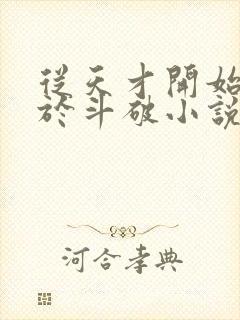 從天才開始
於斗破小說
河合孝典